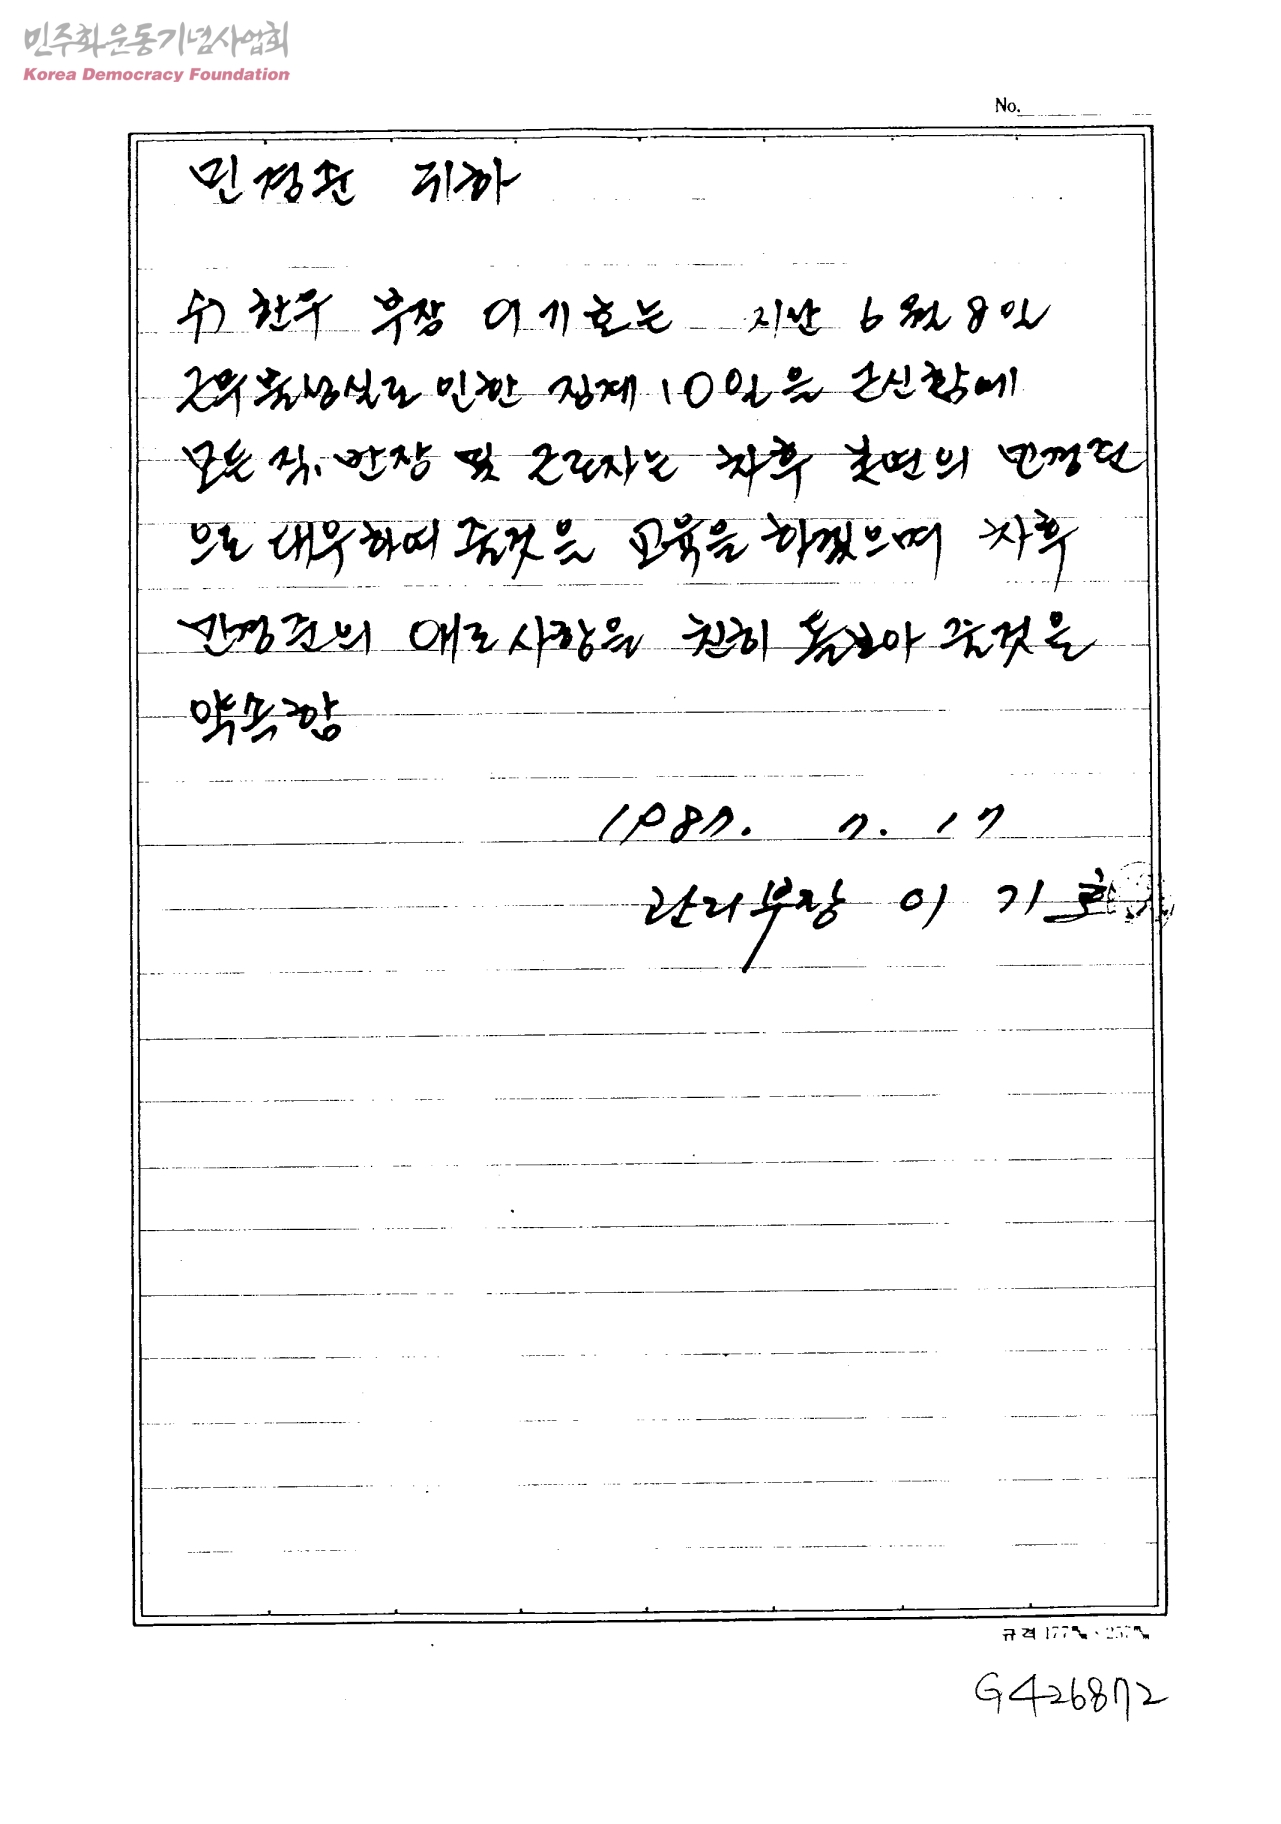 민주화운동기념사업회
Korea Democracy Foundation
No.
민경준 귀하
수) 한우 부장 이기호는 지난 6월 8일
근무불성실로 인한 징계 10일을 근신함에
모든 직, 반장 및 근로자는 차후 본연의 민경준
으로 대우하여 줄것은 교육을 하겠으며 차후
민경준의 애로사항을 친히 돌보아 줄것을
약속함
1987. 7. 17
관리부장 이기호
규격 177㎜ × 257㎜
G426872